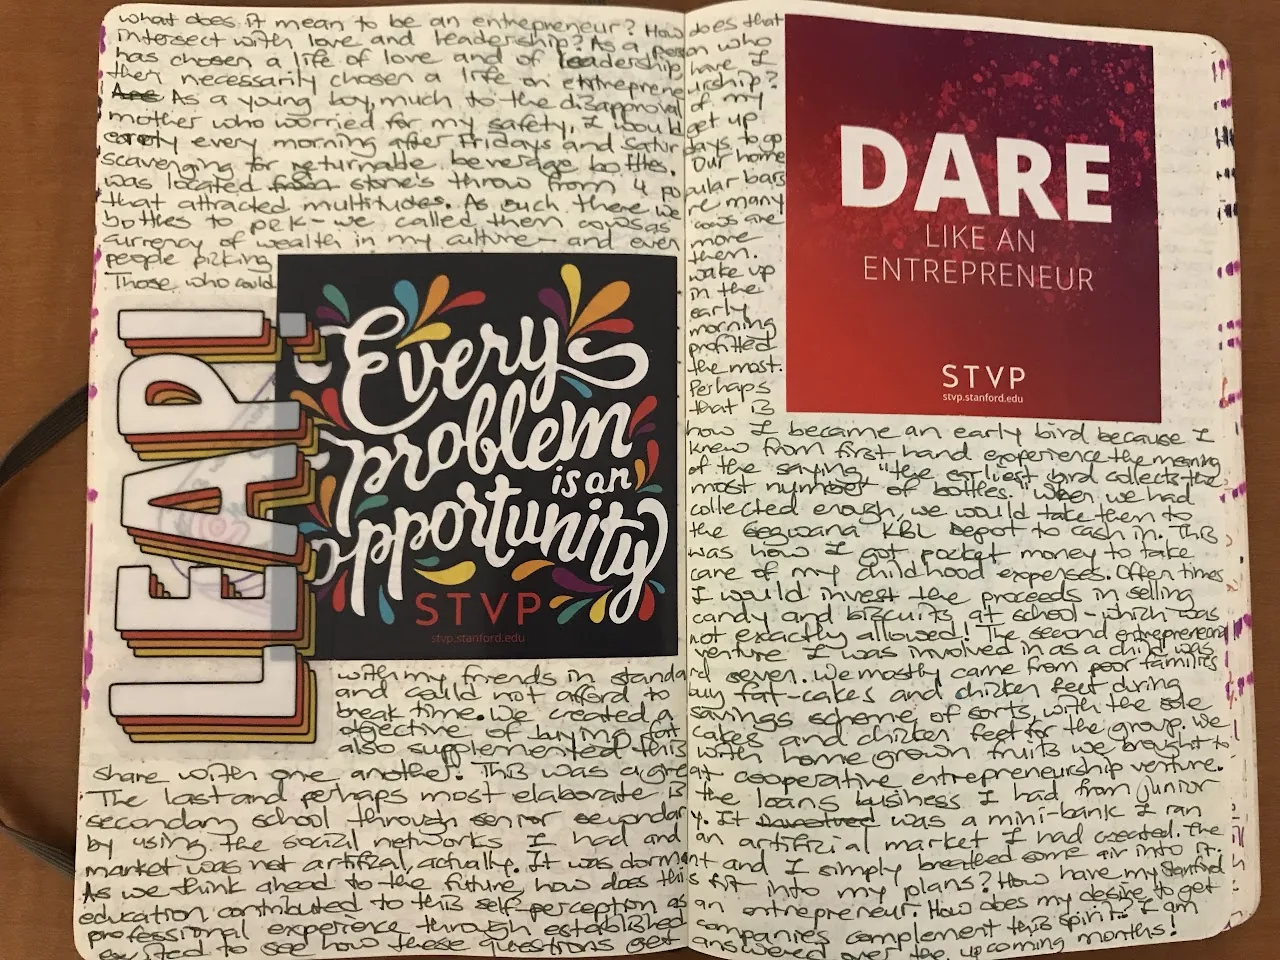 what does it mean to be an entrepreneur? How does that
intersect with love and leadership? As a person who
has chosen a life of love and of leadership have I
then necessarily chosen a life on entrepreneurship?
As a young boy, much to the disapproval of my
mother who worried for my safety, I would get up
early every morning after Fridays and Saturdays to go
scavenging for returnable beverage bottles. Our home
was located from stone's throw from 4 popular bars
that attracted multitudes. As such there were many
bottles to pick - we called them cows as cows are
currency of wealth in my culture - and even more
people picking them.
Those who could wake up
in the
early
morning
profitted
the most.
Perhaps
that is
LEAP!
Every
problem
is an
opportunity
STVP
stvp.stanford.edu
DARE
LIKE AN
ENTREPRENEUR
STVP
stvp.stanford.edu
how I became an early bird because I
knew from first hand experience the meaning
of the saying "the earliest bird collects the
most number of bottles." When we had
collected enough, we would take them to
the Segwana KBL Depot to cash in. This
was how I got pocket money to take
care of my childhood expenses. Often times
I would invest the proceeds in selling
candy and biscuits at school - which was
not exactly allowed! The second entrepreneurial
venture I was involved in as a child was
with my friends in standard seven. We mostly came from poor families
and could not afford to buy fat-cakes and chicken feet during
break time. We created a savings scheme of sorts, with the sole
objective of buying fat cakes and chicken feet for the group. We
also supplemented this with home grown fruits we brought to
share with one another. This was a great cooperative entrepreneurship venture.
The last and perhaps most elaborate is the loans business I had from junior
secondary school through senior secondary. It was a mini-bank I ran
by using the social networks I had and an artificial market I had created. The
market was not artifizal, actually. It was dormant and I simply breathed some air into it.
As we think ahead to the future, how does this fit into my plans? How have my Stanford
education contributed to this self-perception as an entrepreneur. How does my desire to get
professional experience through established companies complement this spirit? I am
excited to see how these questions get answered over the upcoming months!